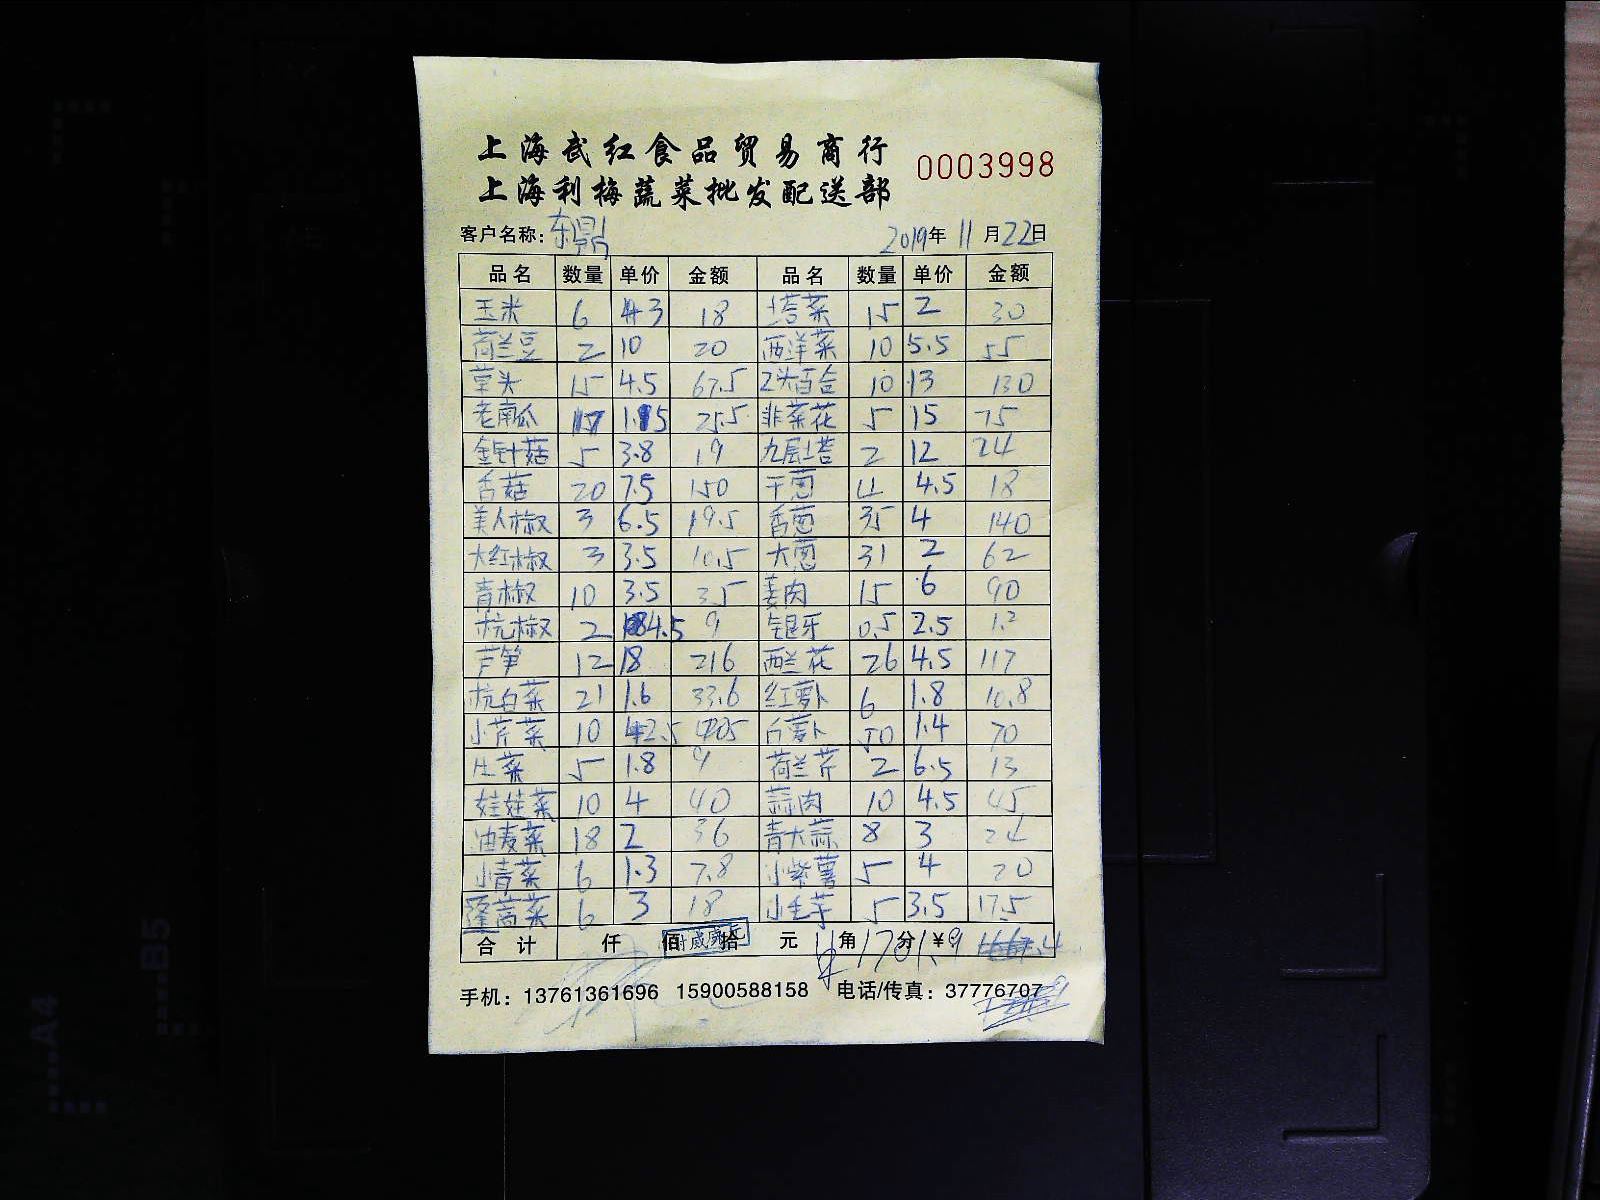 上海武红食品贸易商行
0003998
上海利梅蔬菜批发配送部
客户名称：东鼎 2019年 11月22日
品名 数量 单价 金额 品名 数量 单价 金额
玉米 6 3 18 塔菜 15 2 30
荷兰豆 2 10 20 西洋菜 10 5.5 55
草头 15 4.5 67.5 2头百合 10 13 130
老南瓜 17 1.5 25.5 韭菜花 5 15 75
金针菇 5 3.8 19 九层塔 2 12 24
香菇 20 7.5 150 干葱 4 4.5 18
美人椒 3 6.5 19.5 香葱 35 4 140
大红椒 3 3.5 10.5 大葱 31 2 62
青椒 10 3.5 35 姜肉 15 6 90
杭椒 2 4.5 9 银牙 0.5 2.5 1.2
芦笋 12 18 216 西兰花 26 4.5 117
杭白菜 21 1.6 33.6 红萝卜 6 1.8 10.8
小芹菜 10 2.5 25 白萝卜 50 1.4 70
生菜 5 1.8 9 荷兰芹 2 6.5 13
娃娃菜 10 4 40 蒜肉 10 4.5 45
油麦菜 18 2 36 青大蒜 8 3 24
小青菜 6 1.3 7.8 小紫薯 5 4 20
蓬蒿菜 6 3 18 小毛芋 5 3.5 17.5
合计 仟 佰 拾 元 角 分 ¥ 1701.9
手机：13761361696 15900588158 电话/传真：37776707